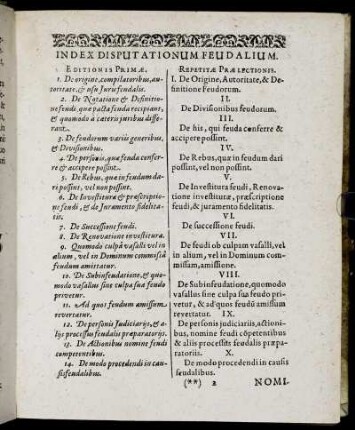 INDEX DISPUTATIONUM FEUDALIUM.
EDITIONIS PRIMÆ.
1. De origine, compilatoribus, au-
toritate, & usu Juris feudalis.
2. De Notatione & Definitio-
ne feudi, quæ pacta feudo recipiant,
& quomodo à cæteris juribus diffe-
rant.
3. De feudorum variis generibus,
& Divisionibus.
4. De personis, quæ feuda confer-
re & accipere possint.
5. De Rebus, quæ in feudum da-
ri possint, vel non possint.
6. De Investitura & præscriptio-
ne feudi, & de Juramento fidelita-
tis.
7. De Successione feudi.
8. De Renovatione investituræ.
9. Quomodo culpâ vasalli vel in
alium, vel in Dominum commissâ
feudum amittatur.
10. De Subinfeudatione, & quo-
modo vasallus sine culpa sua feudo
privetur.
11. Ad quos feudum amissum
revertatur.
12. De personis Judiciariis, & a-
liis processus feudalis præparatoriis.
13. De Actionibus nomine feudi
competentibus.
14. De modo procedendi in cau-
sis feudalibus.
REPETITÆ PRÆLECTIONIS.
I. De Origine, Autoritate, & De-
finitione Feudorum.
II.
De Divisionibus feudorum.
III.
De his, qui feuda conferre &
accipere possint.
IV.
De Rebus, quæ in feudum dari
possint, vel non possint.
V.
De Investitura feudi, Renova-
tione investituræ, præscriptione
feudi, & juramento fidelitatis.
VI.
De successione feudi.
VII.
De feudi ob culpam vasalli, vel
in alium, vel in Dominum com-
missam, amissione.
VIII.
De Subinfeudatione, quomodo
vasallus sine culpa sua feudo pri-
vetur, & ad quos feudũ amissum
revertatur. IX.
De personis judiciariis, actioni-
bus, nomine feudi cõpetentibus
& aliis processus feudalis præpa-
ratoriis. X.
De modo procedendi in causis
feudalibus.
(**) 2 NOMI-